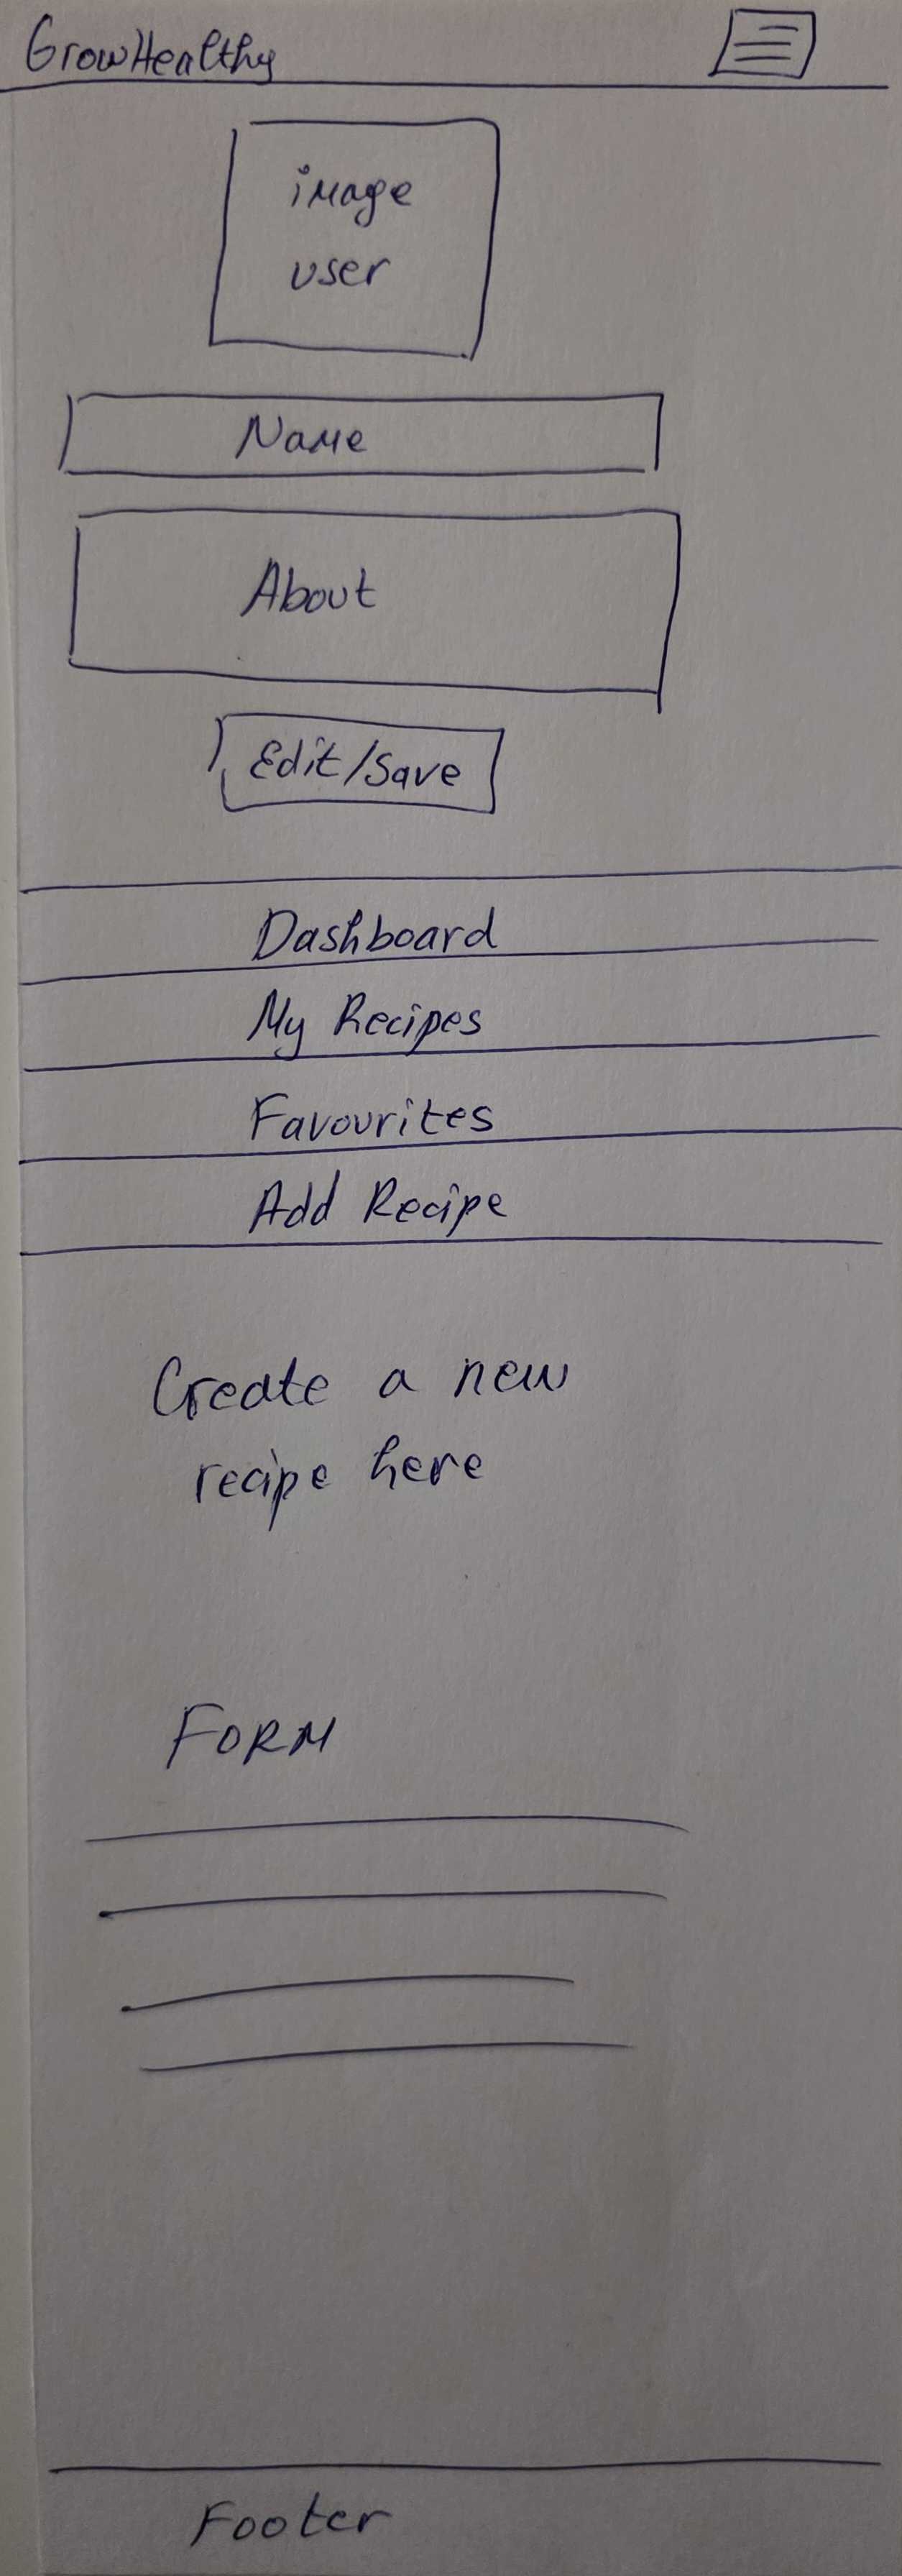 GrowHealthy
image
user
Name
About
Edit/Save
Dashboard
My Recipes
Favourites
Add Recipe
Create a new
recipe here
FORM
Footer